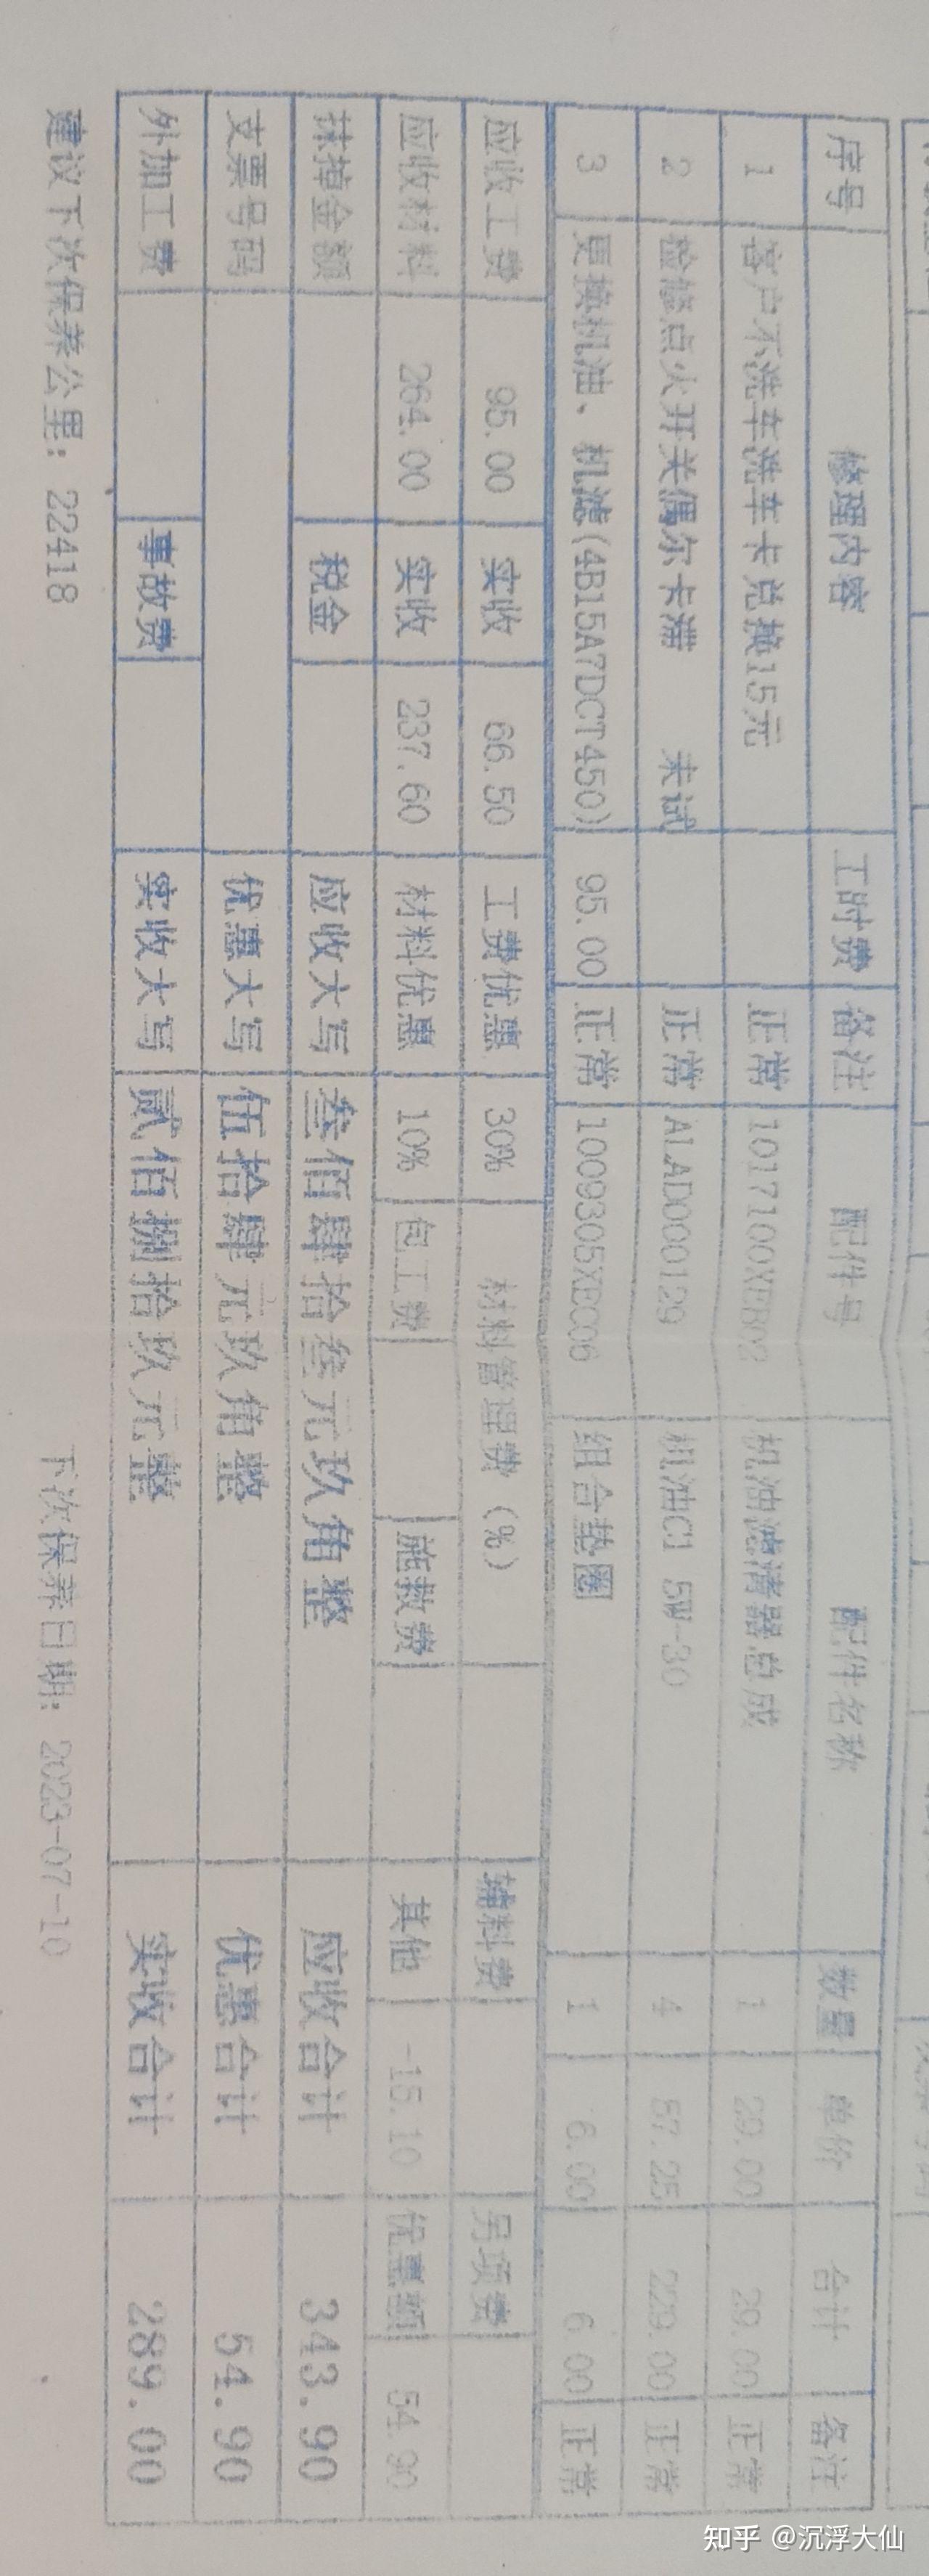 序号 修理内容 工时费 备注 配件号 配件名称 数量 单价 合计 备注
1 客户不洗车洗车卡兑换15元 正常 1017100XEB02 机油滤清器总成 1 29.00 29.00 正常
2 检修点火开关偶尔卡滞 未试 正常 ALAD000129 机油C1 5W-30 4 57.25 229.00 正常
3 更换机油、机滤(4B15A7DCT450) 95.00 正常 1009305XEC06 组合垫圈 1 6.00 6.00 正常
应收工费 95.00 实收 66.50 工费优惠 30% 材料管理费(%) 辅料费 另项费
应收材料 264.00 实收 237.60 材料优惠 10% 包工费 施救费 其他 -15.10 优惠额 54.90
抹掉金额 税金 应收大写 叁佰肆拾叁元玖角整 应收合计 343.90
支票号码 优惠大写 伍拾肆元玖角整 优惠合计 54.90
外加工费 事故费 实收大写 贰佰捌拾玖元整 实收合计 289.00
建议下次保养公里: 22418 下次保养日期: 2023-07-10
知乎 @沉浮大仙